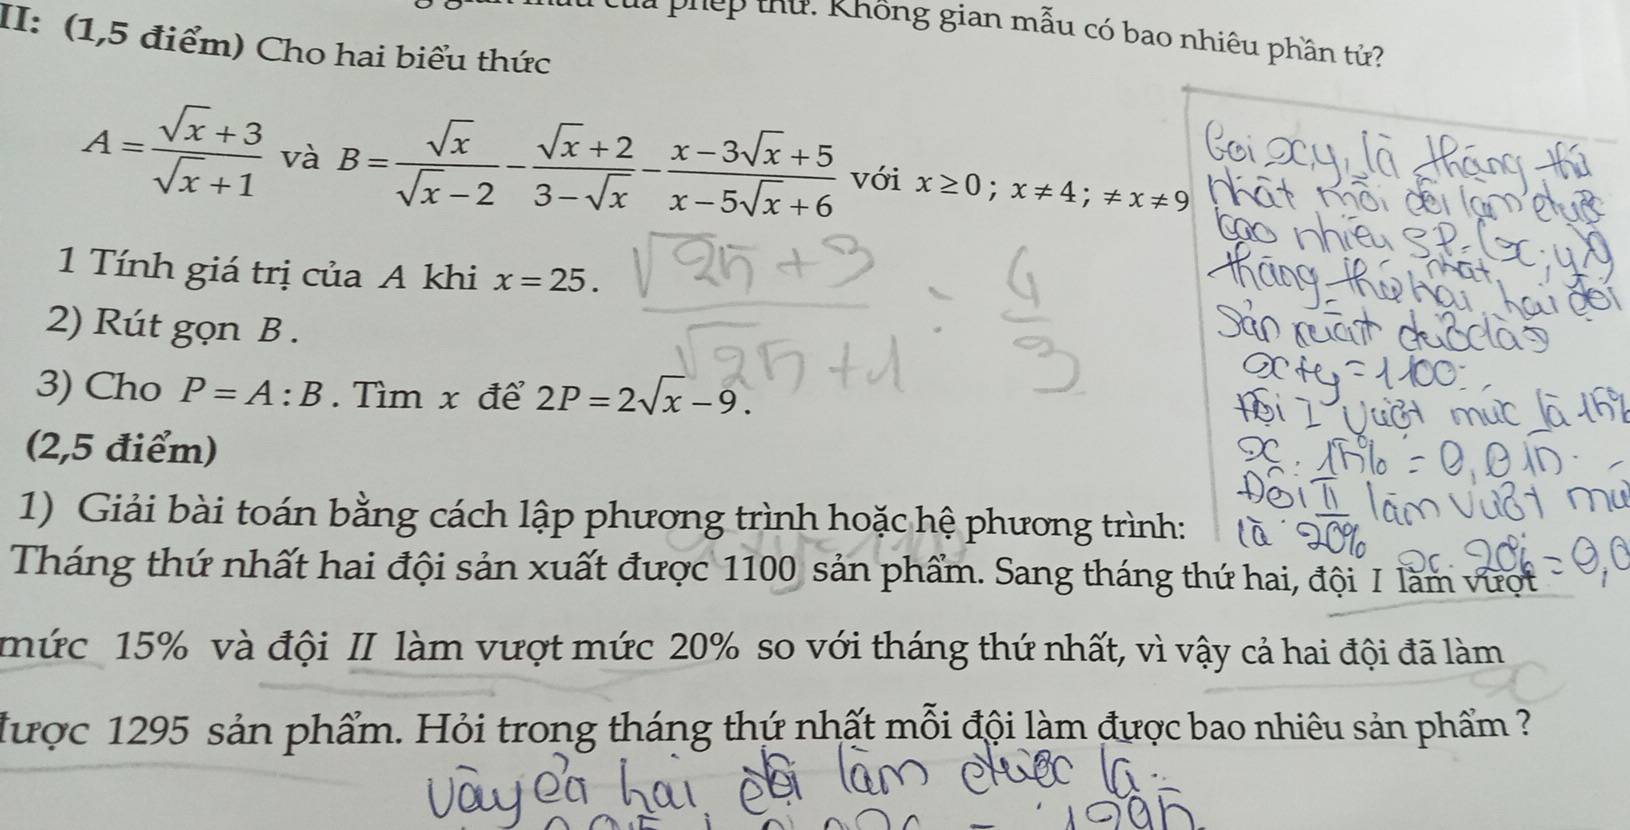 của phép thử. Không gian mẫu có bao nhiêu phần tử?
II: (1,5 điểm) Cho hai biểu thức
A = (√x + 3)/(√x + 1) và B = √x/(√x − 2) − (√x + 2)/(3 − √x) − (x − 3√x + 5)/(x − 5√x + 6) với x ≥ 0 ; x ≠ 4 ; ≠ x ≠ 9
1 Tính giá trị của A khi x = 25.
2) Rút gọn B.
3) Cho P = A : B. Tìm x để 2P = 2√x − 9.
(√25 + 3)/(√25 + 1) = 4/3
(2,5 điểm)
1) Giải bài toán bằng cách lập phương trình hoặc hệ phương trình:
Tháng thứ nhất hai đội sản xuất được 1100 sản phẩm. Sang tháng thứ hai, đội I làm vượt
mức 15% và đội II làm vượt mức 20% so với tháng thứ nhất, vì vậy cả hai đội đã làm
được 1295 sản phẩm. Hỏi trong tháng thứ nhất mỗi đội làm được bao nhiêu sản phẩm ?
Gọi x,y, là tháng thứ
nhất mỗi đội làm được
bao nhiêu SP. (x;y
tháng thứ hai hai đội
nhất
sản xuất được là
x+y=1100
đội I vượt mức là 15%
x. 15% = 0,015
Đội II làm vượt mứ
là 20%
x. 20% = 0,0
Vậy cả hai đội làm được là